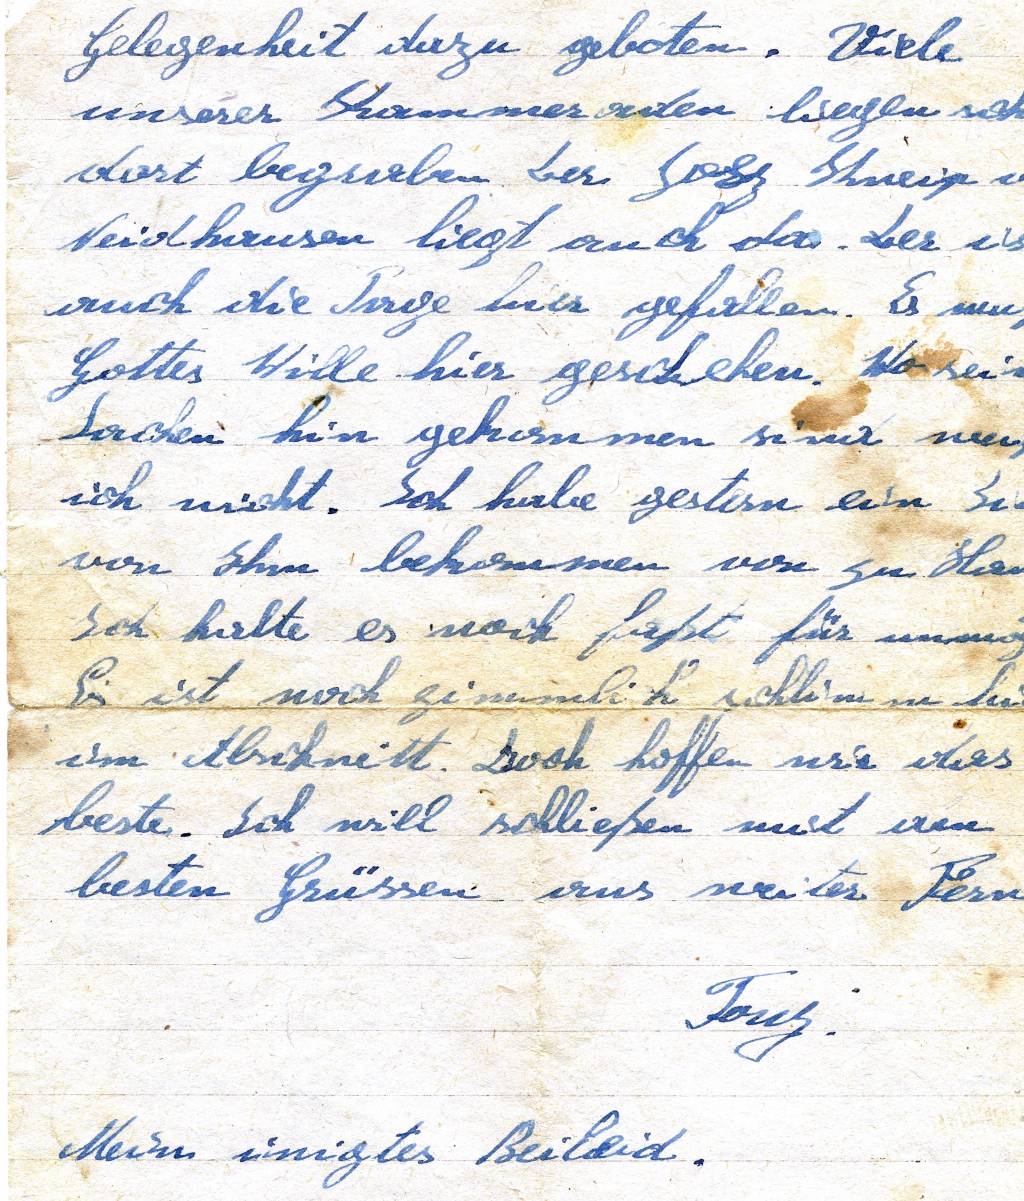 Gelegenheit dazu geboten. Viele
unserer Kammeraden liegen sch
dort begraben Der
Neidhausen liegt auch da. Der is
auch die Tage hier gefallen. Es mu
Gottes Wille hier geschehen. Wo sein
Sachen hin gekommen sind wei
ich nicht. Ich habe gestern ein
von Ihm bekommen von zu Hau
Ich halte es noch faßt für unmög
Es ist noch zimmlich schlimm hi
im Abschnitt. Doch hoffen wir das
beste. Ich will schließen mit den
besten Grüssen aus weiter Fern
Mein inigtes Beileid.